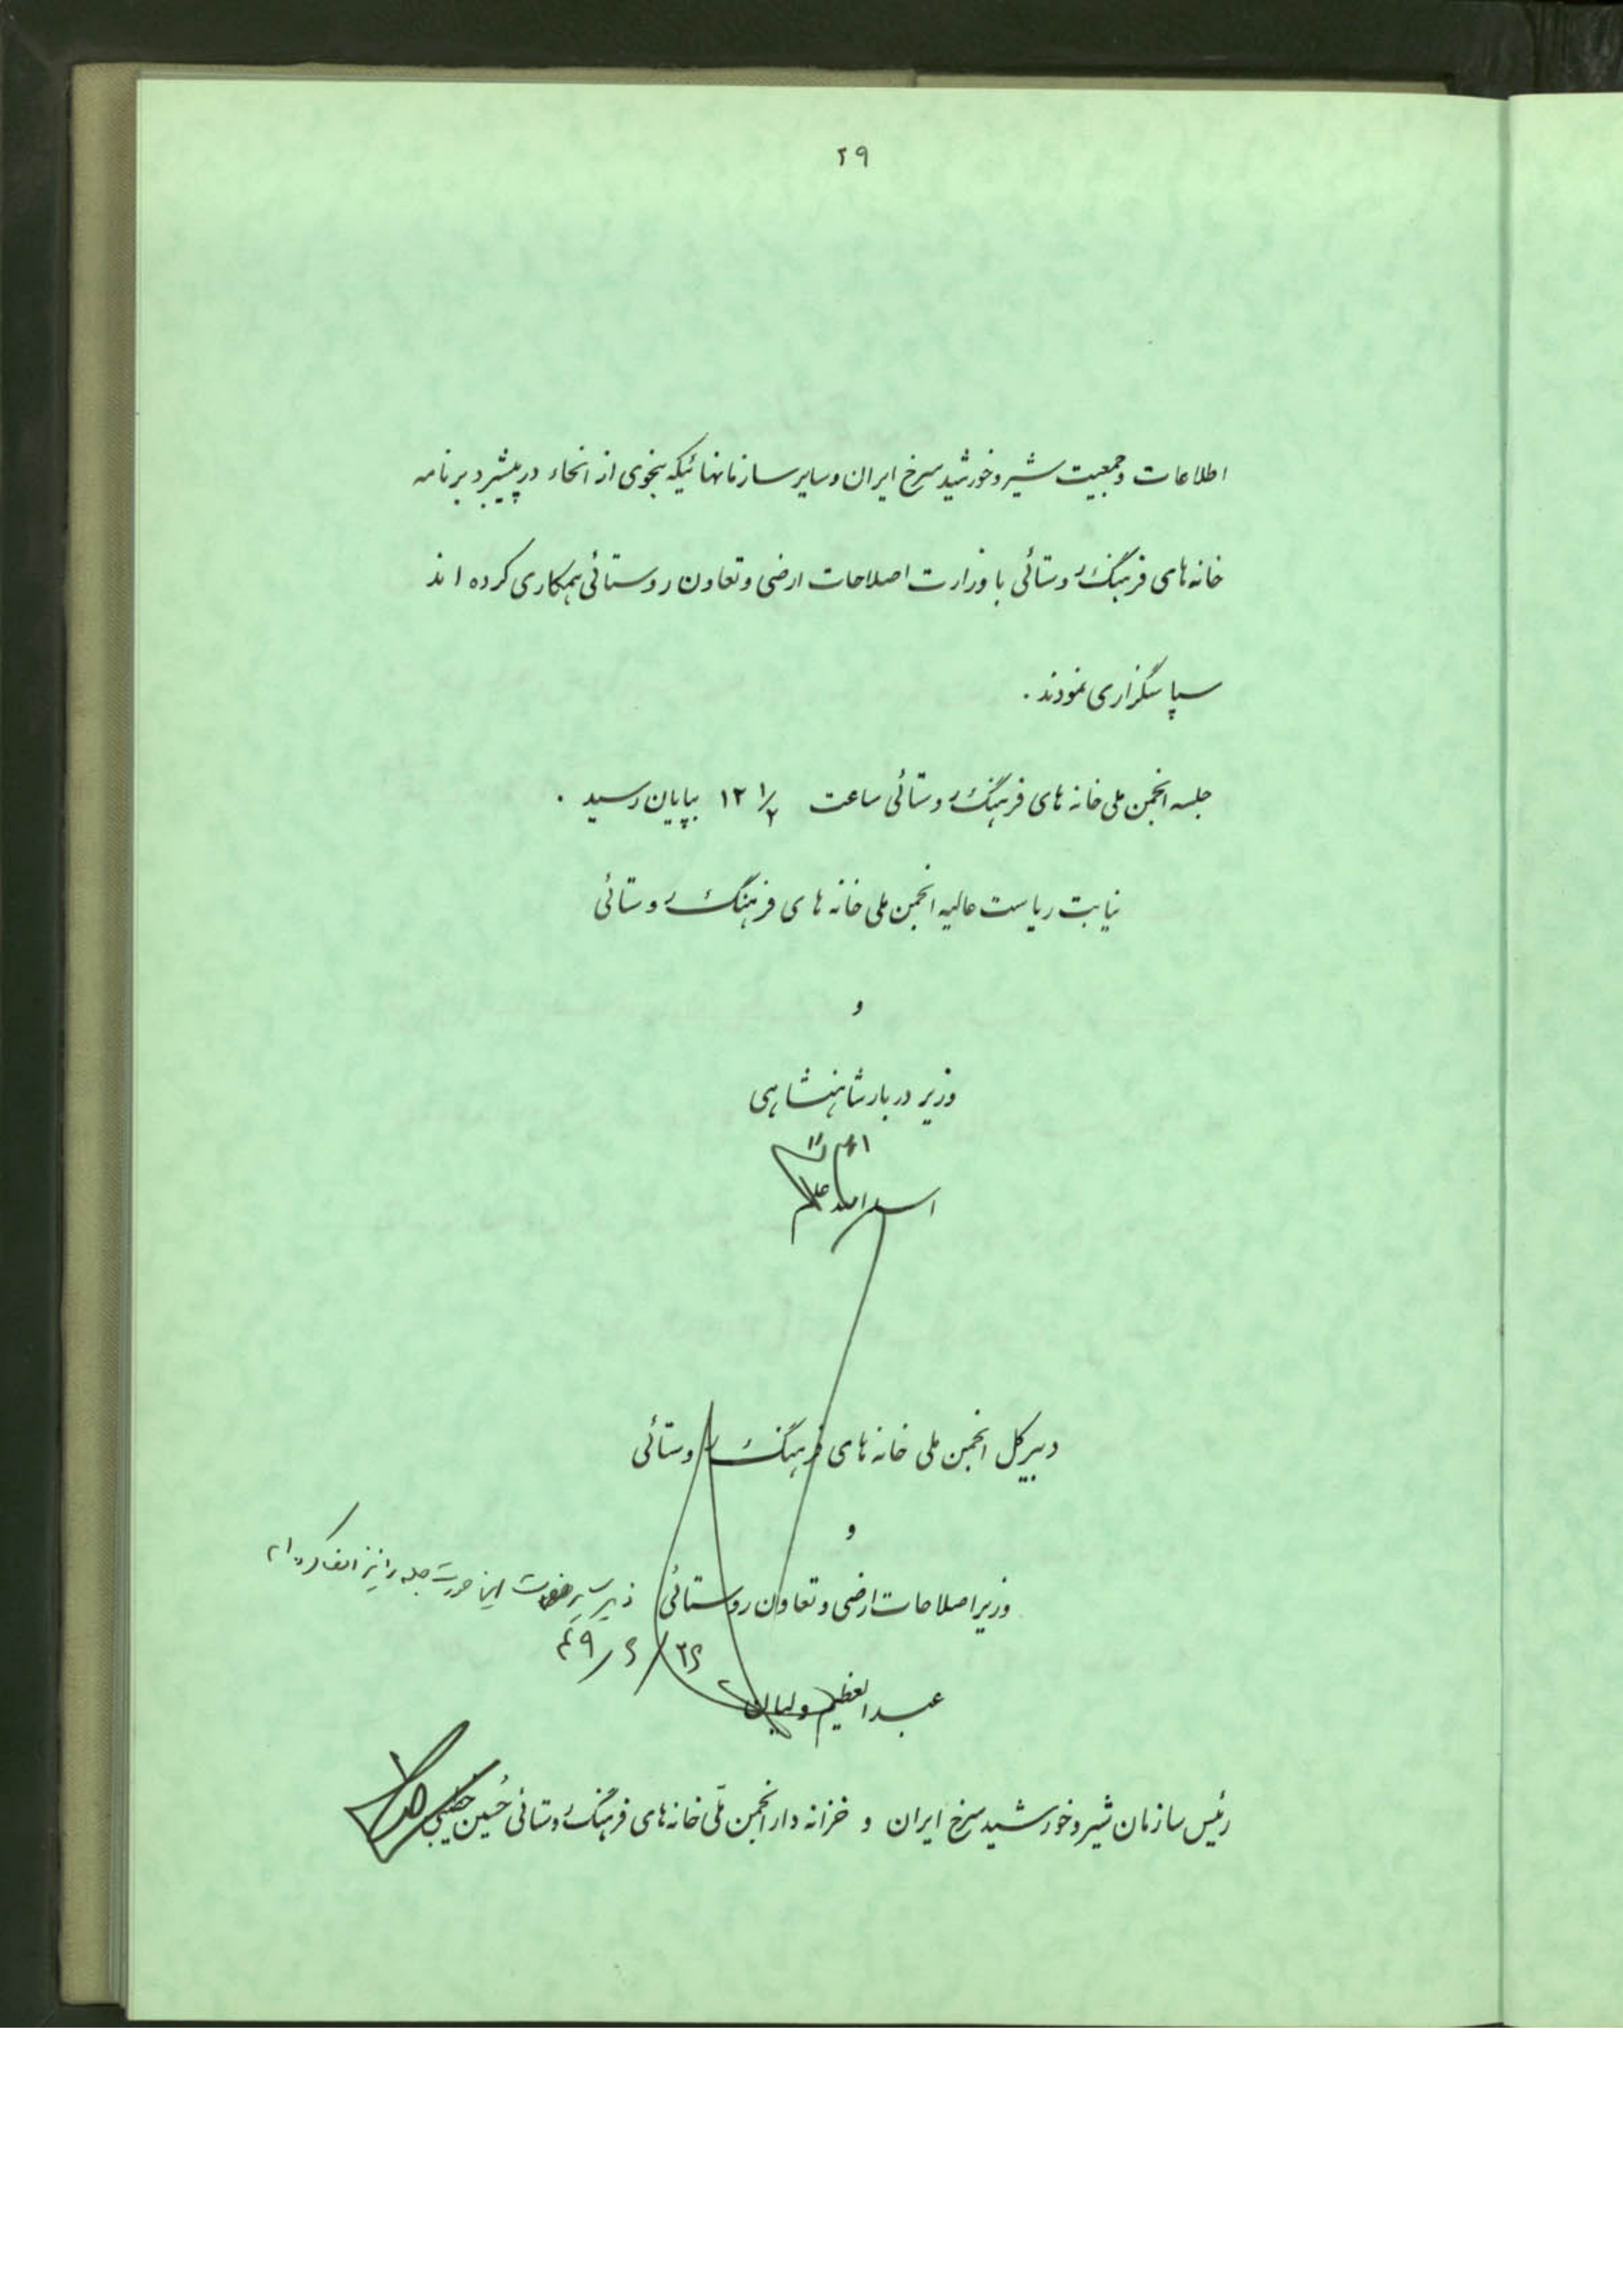 ۲۹
اطلاعات و جمعیت شیر و خورشید سرخ ایران و سایر سازمانهائیکه بنحوی از انحاء در پیشبرد برنامه
خانه‌های فرهنگ روستائی با وزارت اصلاحات ارضی و تعاون روستائی همکاری کرده اند
سپاسگزاری نمودند .
جلسه انجمن ملی خانه های فرهنگ روستائی ساعت ۱۲ ۱/۲ بپایان رسید .
نیابت ریاست عالیه انجمن ملی خانه های فرهنگ روستائی
و
وزیر دربار شاهنشاهی
اسداله علم
دبیرکل انجمن ملی خانه های فرهنگ روستائی
و
وزیر اصلاحات ارضی و تعاون روستائی
۲۶/۶/۴۹
عبدالعظیم ولیان
رئیس سازمان شیر و خورشید سرخ ایران و خزانه دار انجمن ملّی خانه‌های فرهنگ روستائی حُسین خطیبی